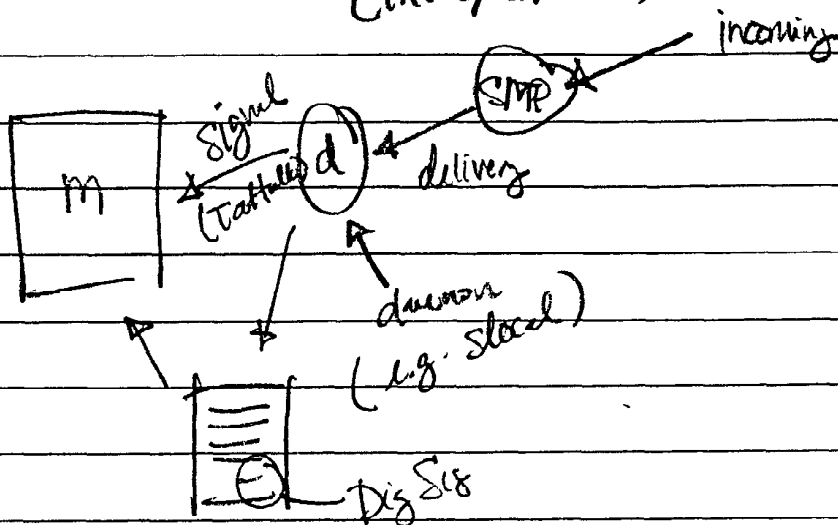 incoming
SMP
signal
d
delivery
M
daemon
(e.g. slocal)
Dig Sig